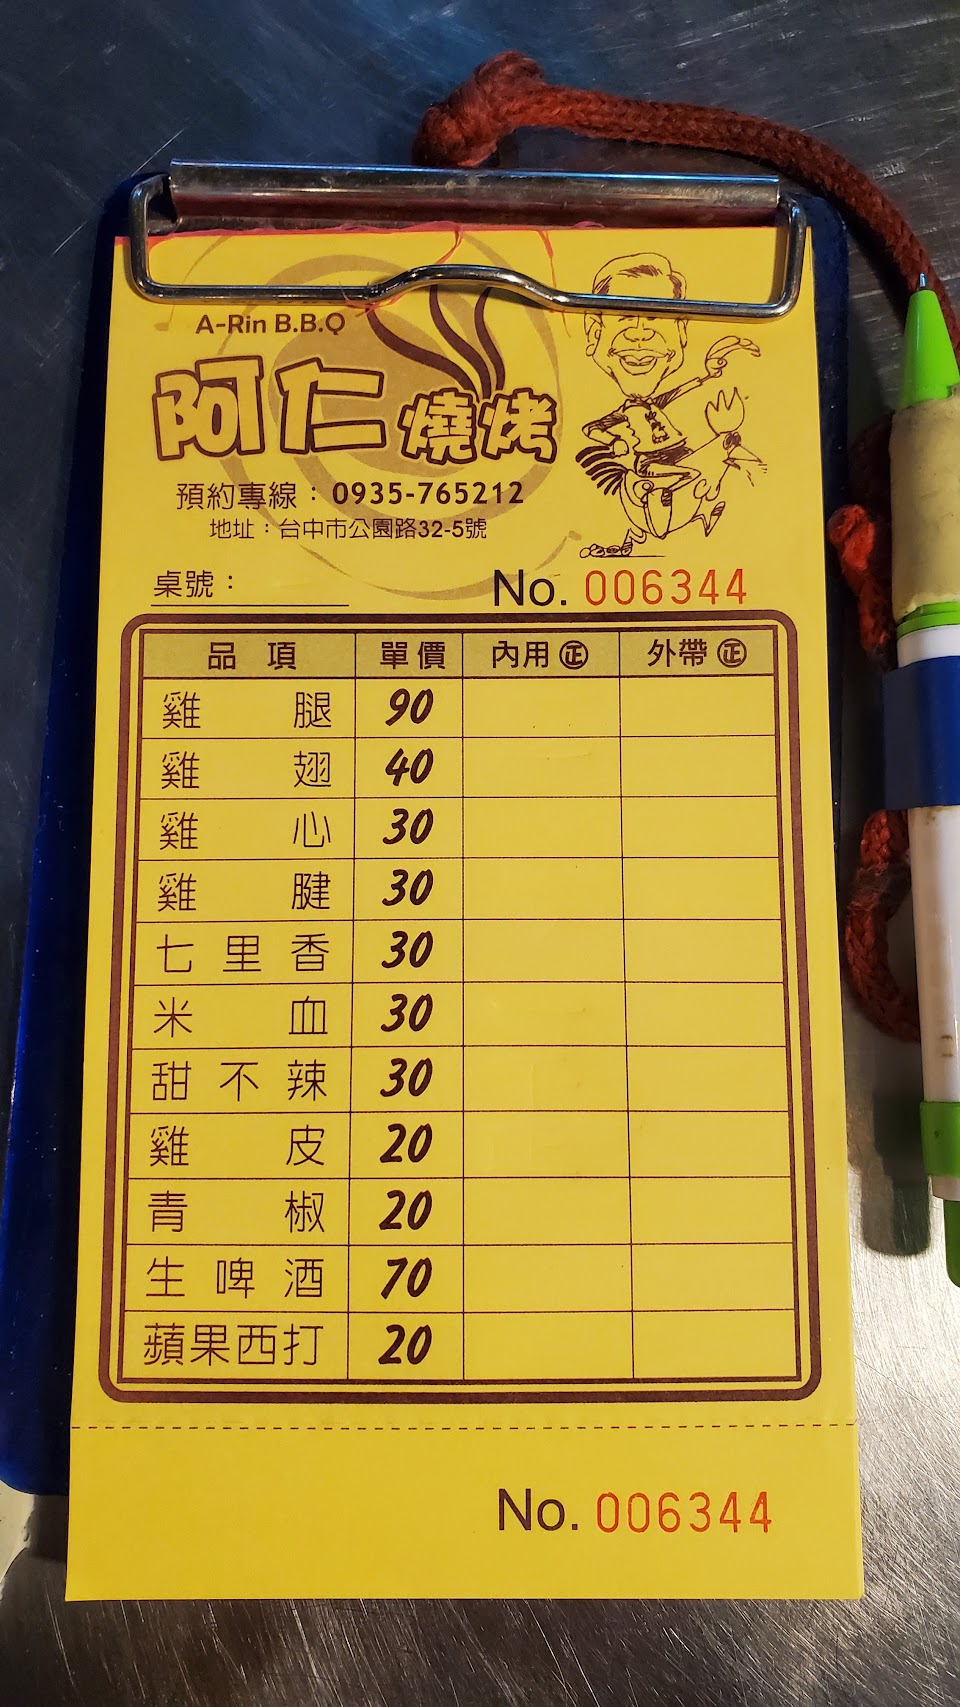 A-Rin B.B.Q
阿仁燒烤
預約專線：0935-765212
地址：台中市公園路32-5號
桌號：
No. 006344
品項 單價 內用㊣ 外帶㊣
雞腿 90
雞翅 40
雞心 30
雞腱 30
七里香 30
米血 30
甜不辣 30
雞皮 20
青椒 20
生啤酒 70
蘋果西打 20
No. 006344